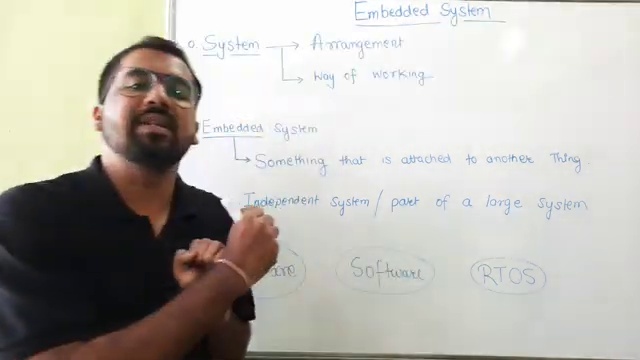 Embedded System
o. System → Arrangement
→ Way of working
Embedded System
→ Something that is attached to another Thing.
Independent system / part of a large system
Software RTOS